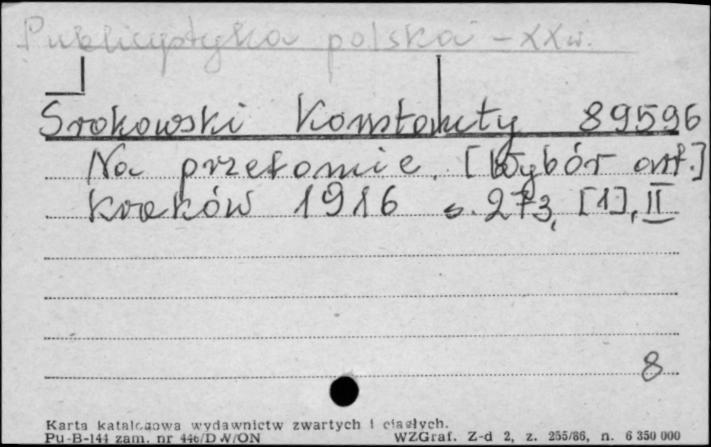 Publicystyka polska - XX w.
Srokowski Konstanty 89596
Na przełomie. [Wybór art.]
Kraków 1916 s. 273, [1], II
8
Karta katalogowa wydawnictw zwartych i ciągłych.
Pu-B-144 zam. nr 446/DW/ON WZGraf. Z-d 2, z. 255/86, n. 6 350 000